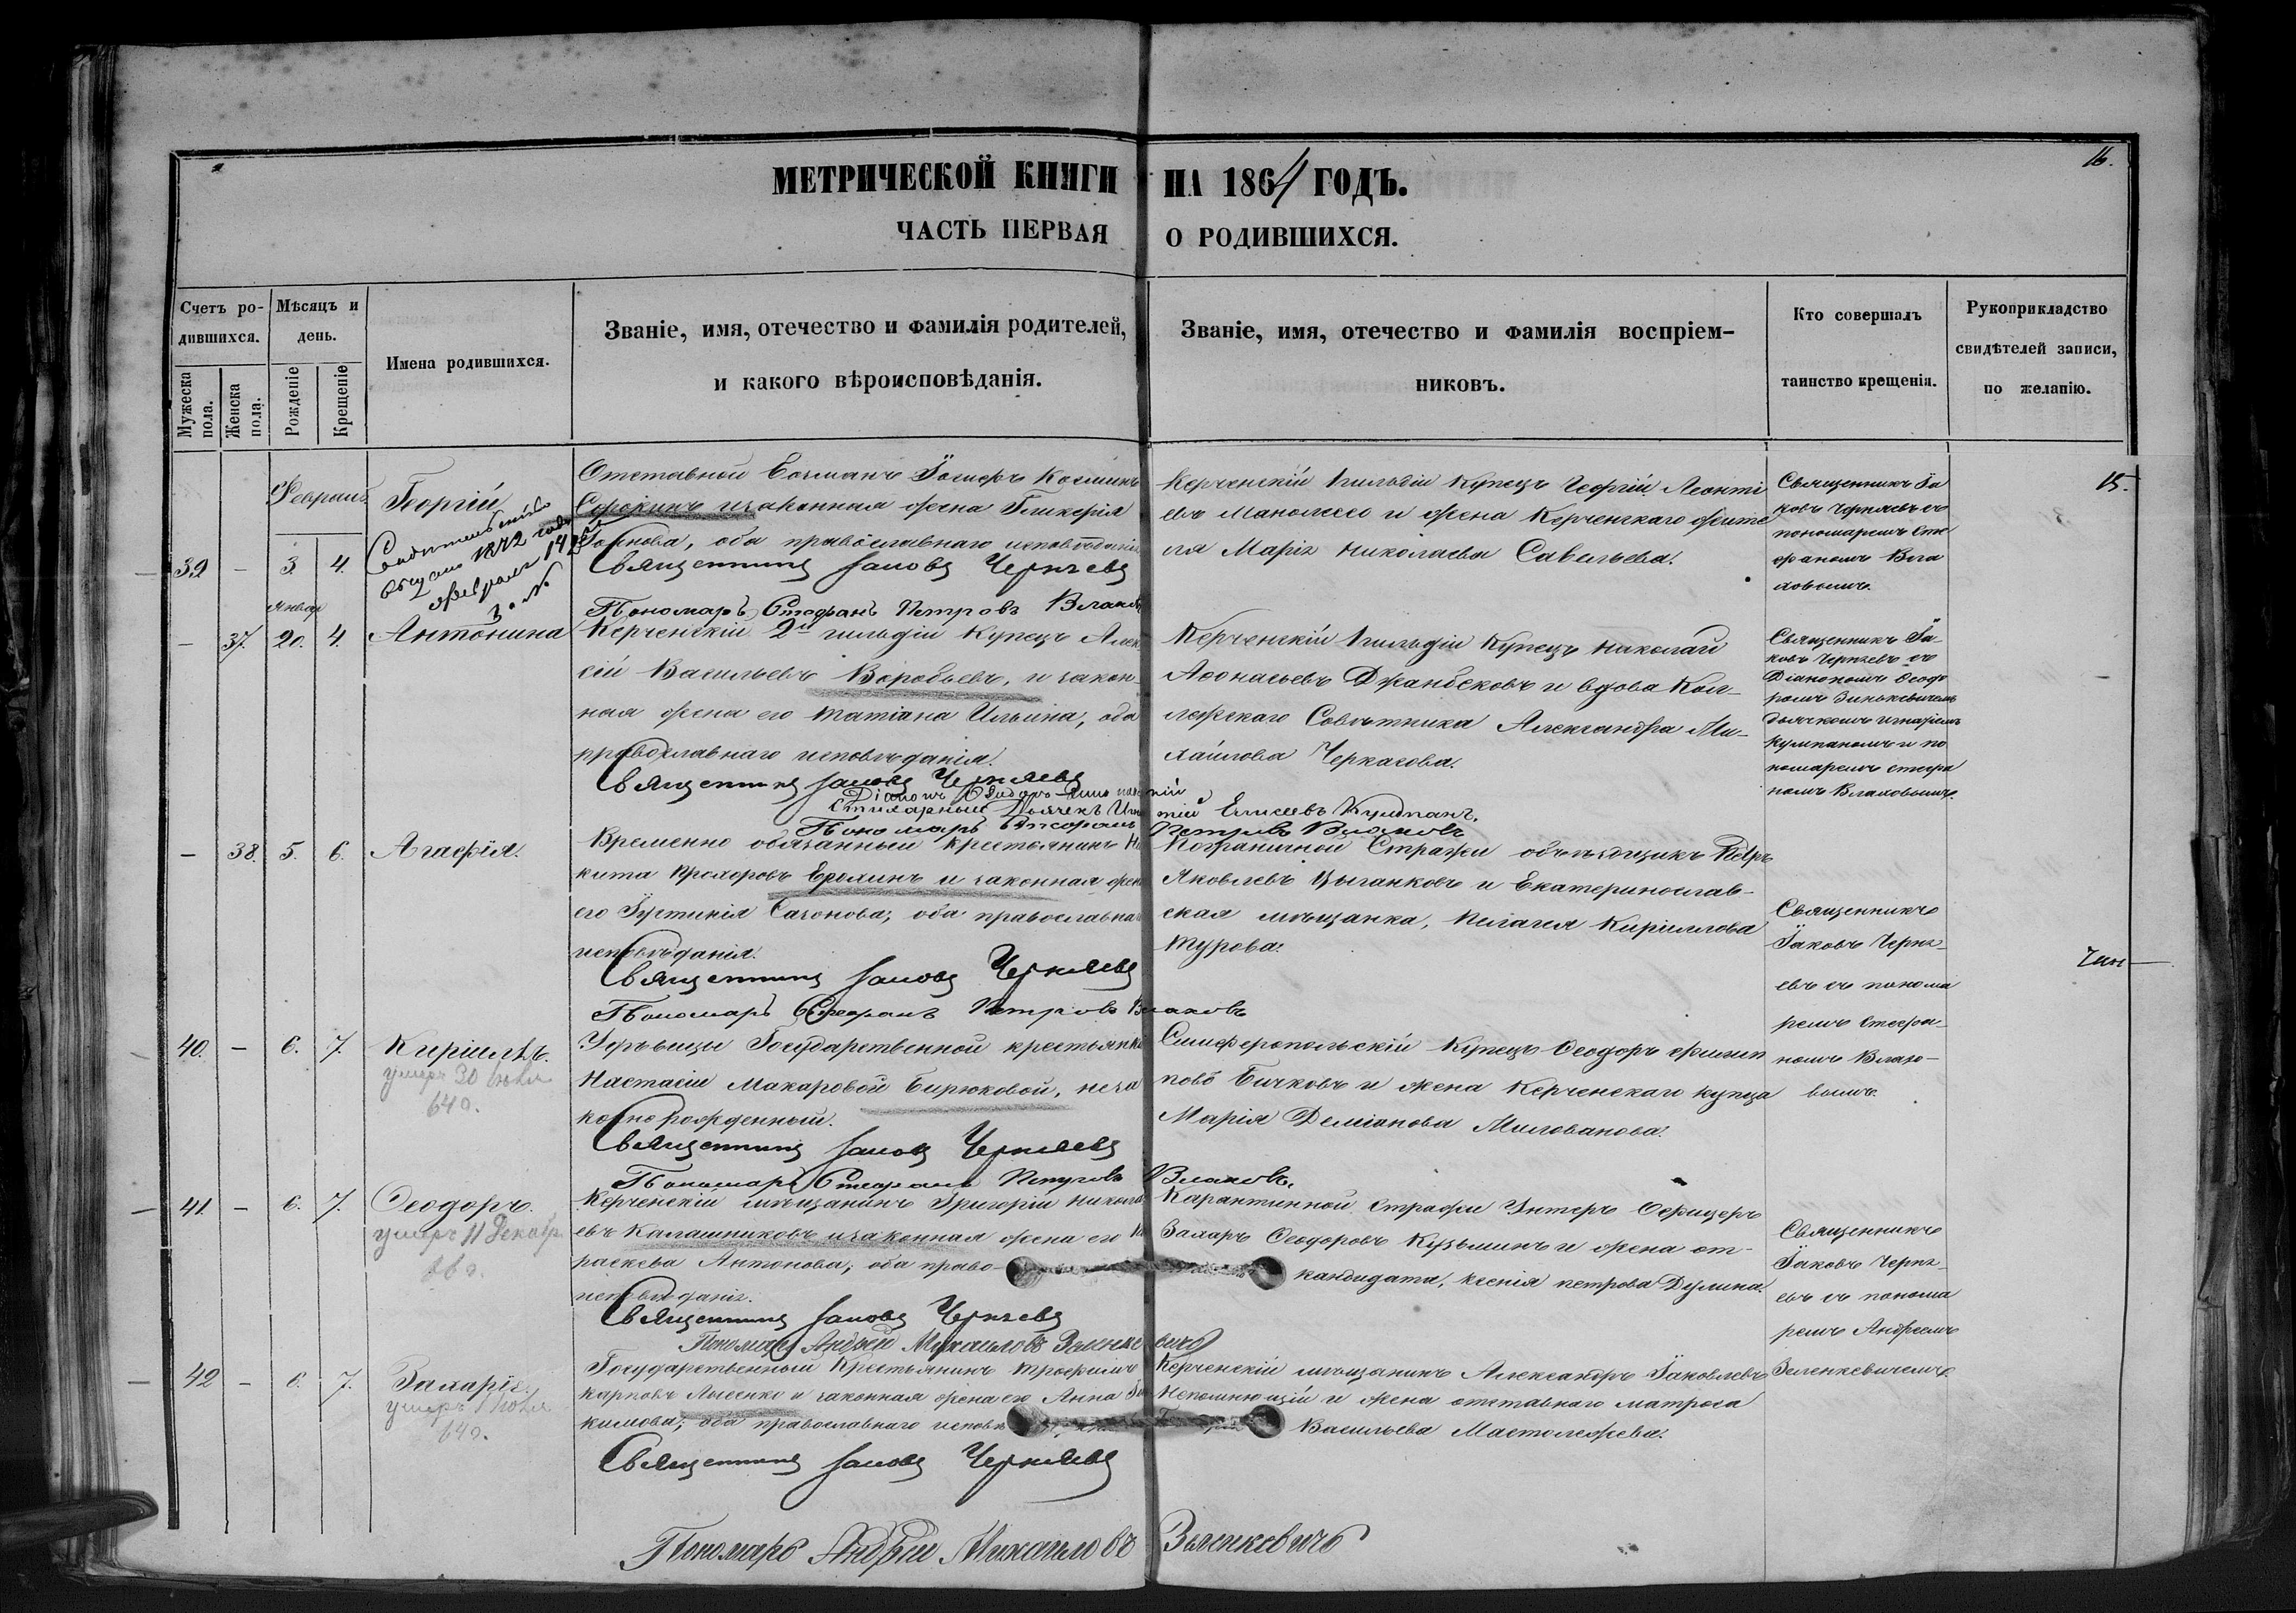 16.
МЕТРИЧЕСКОЙ КНИГИ НА 1864 ГОДЪ.
ЧАСТЬ ПЕРВАЯ О РОДИВШИХСЯ.
Счетъ ро-
дившихся.
Мужеска
пола.
Женска
пола.
Мѣсяцъ и
день.
Рожденіе
Крещеніе
Имена родившихся.
Званіе, имя, отечество и фамилія родителей,
и какого вѣроисповѣданія.
Званіе, имя, отечество и фамилія воспріем-
никовъ.
Кто совершалъ
таинство крещенія.
Рукоприкладство
свидѣтелей записи,
по желанію.
15.
Феврал
39 – 3. 4.
Георгій
1872 года
февраля 14
Отставной Боцманъ Іосифъ Косминъ
Сорокинъ и законная жена Гликерія
оба православнаго исповѣданія
Священникъ Іаковъ Черняевъ
Пономарь Стефанъ Петровъ Влаховъ
Керченскій 1 гильдіи Купецъ Георгій Леонті
евъ Манолесо и жена Керченскаго жите
ля Марія Николаева Савельева.
Священникъ Іа
ковъ Черняевъ съ
пономаремъ Сте
фаномъ Вла
ховымъ.
Январ
– 37. 20. 4.
Антонина
Керченскій 2й гильдіи Купецъ Алек
сій Васильевъ Воробьевъ, и закон-
ная жена его Татіана Ильина, оба
православнаго исповѣданія.
Священникъ Іаковъ Черняевъ
Діаконъ
Дьячекъ Игнатій Елисеевъ Кумпанъ.
Пономарь Стефанъ Петровъ Влаховъ
Керченскій 1 гильдіи Купецъ Николай
Афонасьевъ Джанбековъ и вдова Кол-
лежскаго Совѣтника Александра Ми-
хайлова Черкасова.
Священникъ Іа-
ковъ Черняевъ съ
Діакономъ Феодо
ромъ Зинькевичемъ
дьячкомъ Игнатіемъ
Кумпаномъ и по
номаремъ Стефа
номъ Влаховымъ.
– 38. 5. 6.
Агафія.
Временно обязанный крестьянинъ Ни
кита Прохоровъ Ереминъ и законная жена
его Іустинія Сазонова, оба православнаго
исповѣданія.
Священникъ Іаковъ Черняевъ
Пономарь Стефанъ Петровъ Влаховъ
Пограничной Стражи объѣздчикъ Петръ
Яковлевъ Цыганковъ и Екатеринослав-
ская мѣщанка, Пелагея Кириллова
Турова.
Священникъ
Іаковъ Черня-
евъ съ понома
ремъ Стефа-
номъ Влахо-
вымъ.
40. – 6. 7.
Кириллъ.
умеръ 30 Іюля
64 г.
Государственной крестьянки
Настасіи Макаровой Бирюковой, неза
конно рожденный.
Священникъ Іаковъ Черняевъ
Пономарь Стефанъ Петровъ Влаховъ.
Симферопольскій Купецъ Феодоръ Филип
повъ Бичковъ и жена Керченскаго купца
Марія Деміанова Милованова.
41. – 6. 7.
Феодоръ.
умеръ 11 Декабр
Керченскій мѣщанинъ Григорій Никола
евъ Калашниковъ и законная жена его Па
раскева Антонова, оба право-
исповѣданія.
Священникъ Іаковъ Черняевъ
Пономарь Андрей Михайловъ Зеленкевичъ
Карантинной Стражи Унтеръ Офицеръ
Захаръ Феодоровъ Кузьминъ и жена от-
кандидата, Ксенія Петрова Дулина.
Священникъ
Іаковъ Черня-
евъ съ понома
ремъ Андреемъ
Зеленкевичемъ.
42 – 6. 7.
Захарія.
умеръ Іюля
64 г.
Государственный Крестьянинъ Трофимъ
Карповъ Лысенко и законная жена его Анна
кимова, оба православнаго исповѣ
Священникъ Іаковъ Черняевъ
Пономарь Андрей Михайловъ Зеленкевичъ
Керченскій мѣщанинъ Александръ Іаковлевъ
Непомнющій и жена отставнаго матроса
Васильева Мастолежева.